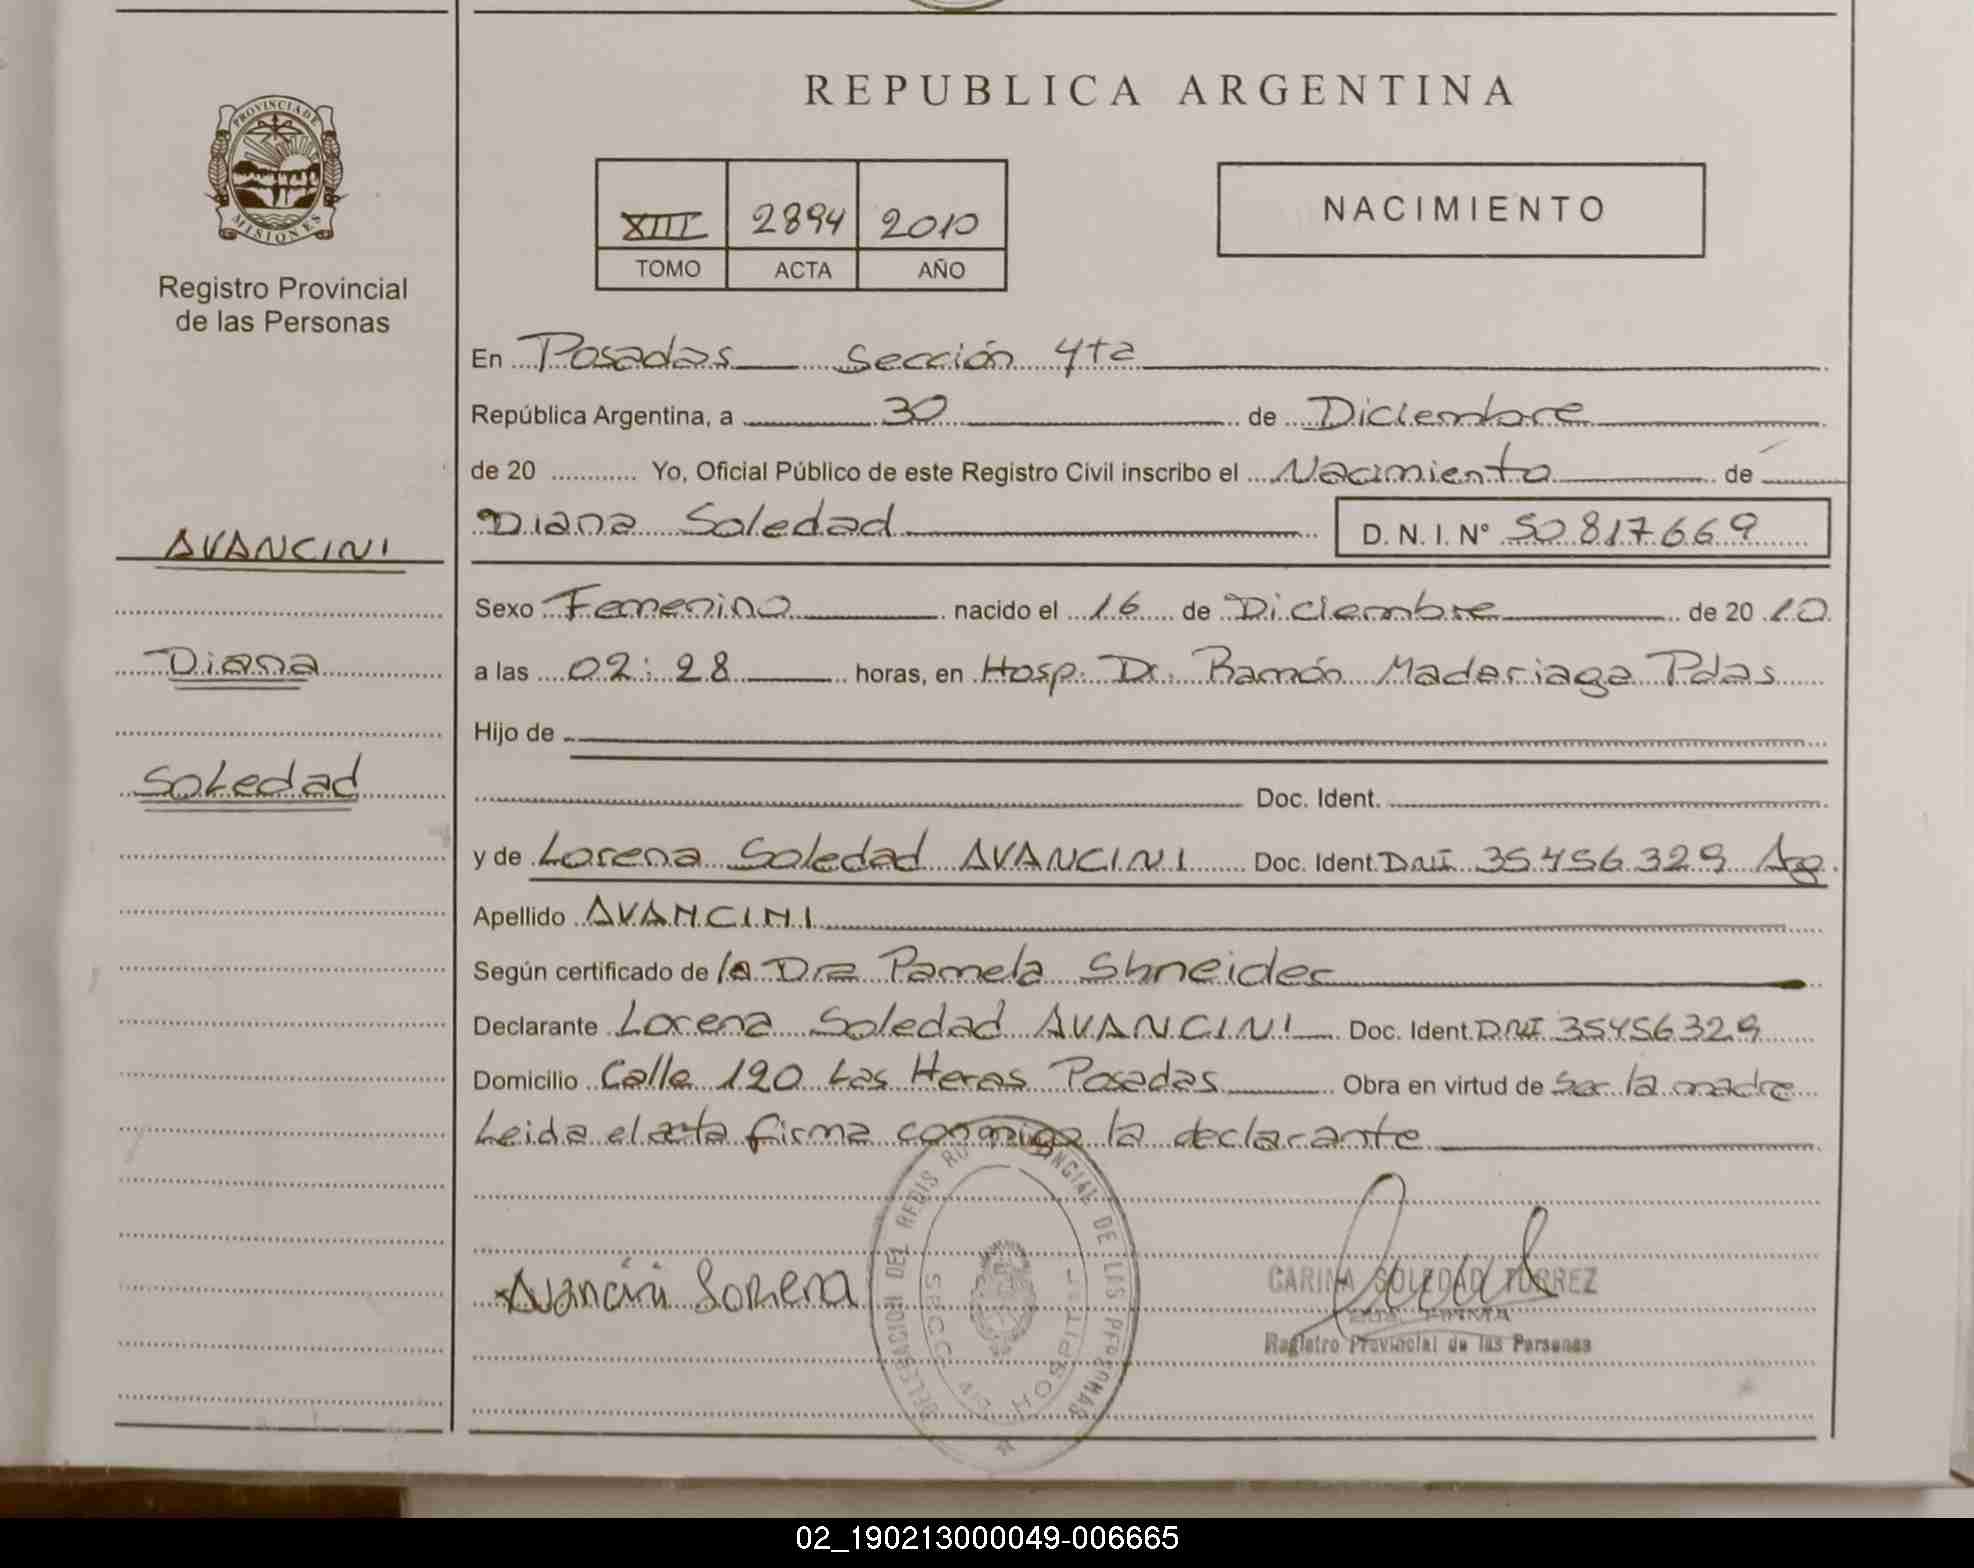 PROVINCIA DE
MISIONES
Registro Provincial
de las Personas
AVANCINI
Diana
Soledad
REPUBLICA ARGENTINA
XIII 2894 2010
TOMO ACTA AÑO
NACIMIENTO
En Posadas Sección 4ta
República Argentina, a 30 de Diciembre
de 20 Yo, Oficial Público de este Registro Civil inscribo el Nacimiento de
Diana Soledad D. N. I. N° 50817669
Sexo Femenino nacido el 16 de Diciembre de 20 10
a las 02:28 horas, en Hosp. Dr. Ramón Madariaga Pdas
Hijo de
Doc. Ident.
y de Lorena Soledad AVANCINI Doc. Ident. DNI 35456329 Arg.
Apellido AVANCINI
Según certificado de la Dra Pamela Shneider
Declarante Lorena Soledad AVANCINI Doc. Ident. DNI 35456329
Domicilio Calle 120 Las Heras Posadas Obra en virtud de Ser la madre
Leida el acta firma conmigo la declarante
Avancini Lorena
DELEGACION DEL REGISTRO PROVINCIAL DE LAS PERSONAS
SECC. 4a HOSPITAL
CARINA SOLEDAD TORREZ
Registro Provincial de las Personas
02_190213000049-006665